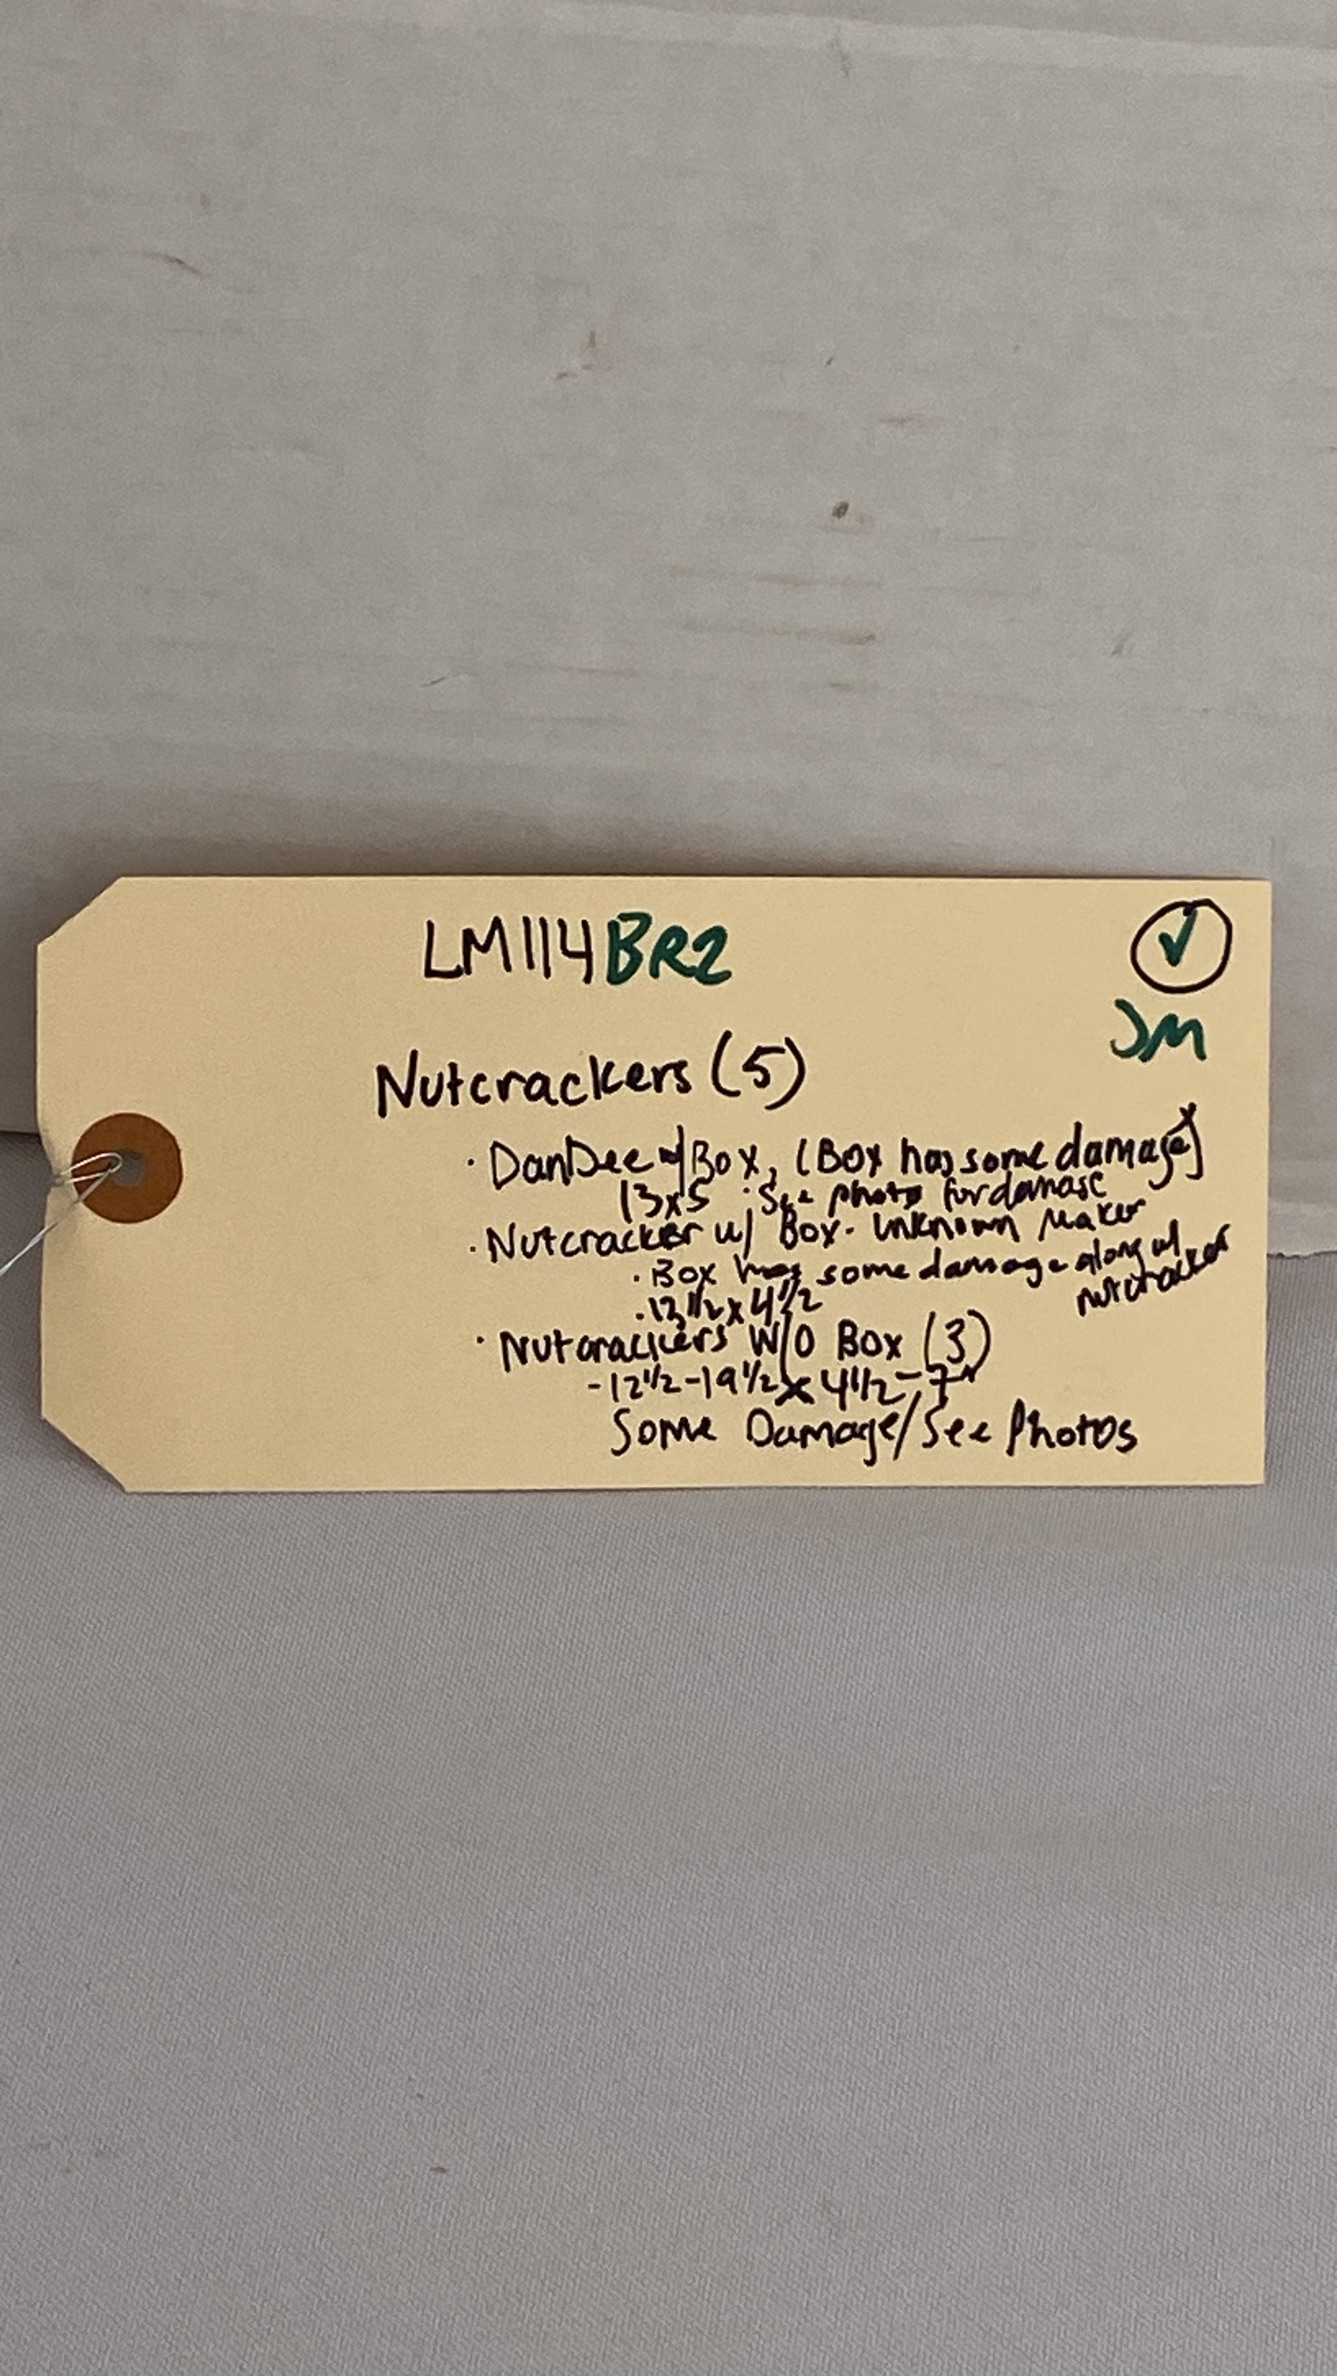 LM114BR2
✓
JM
Nutcrackers (5)
· DanDee w/Box, (Box has some damage)
13x5 · See photo for damage
· Nutcracker w/ Box - Unknown Maker
· Box has some damage along w/
nutcracker
· 13 1/2 x 4 1/2
· Nutcrackers W/O Box (3)
- 12 1/2 - 19 1/2 x 4 1/2 - 7"
Some Damage/See Photos